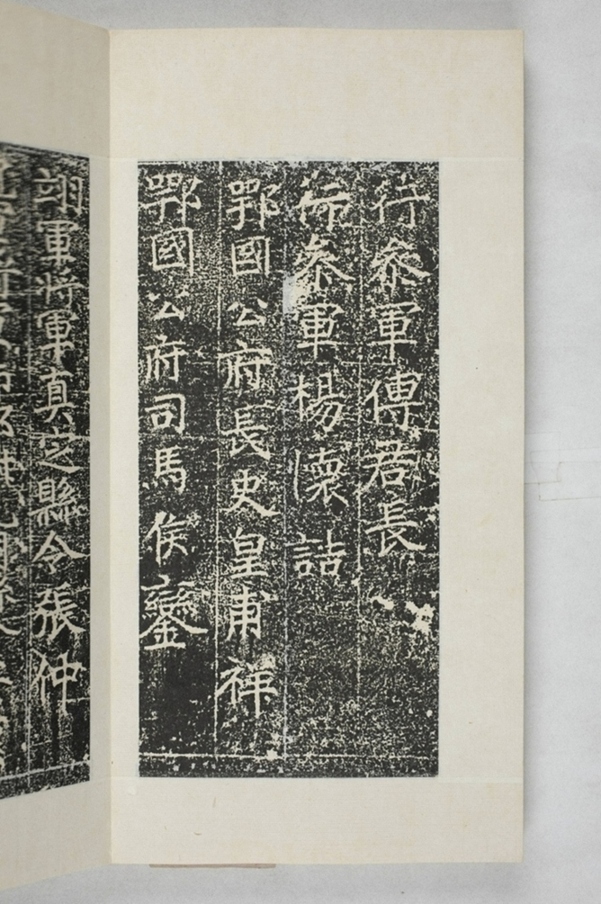 行叅軍傅君長
行叅軍楊懷詰
鄂國公府長史皇甫祥
鄂國公府司馬侯鑾
翊軍將軍真定縣令張仲